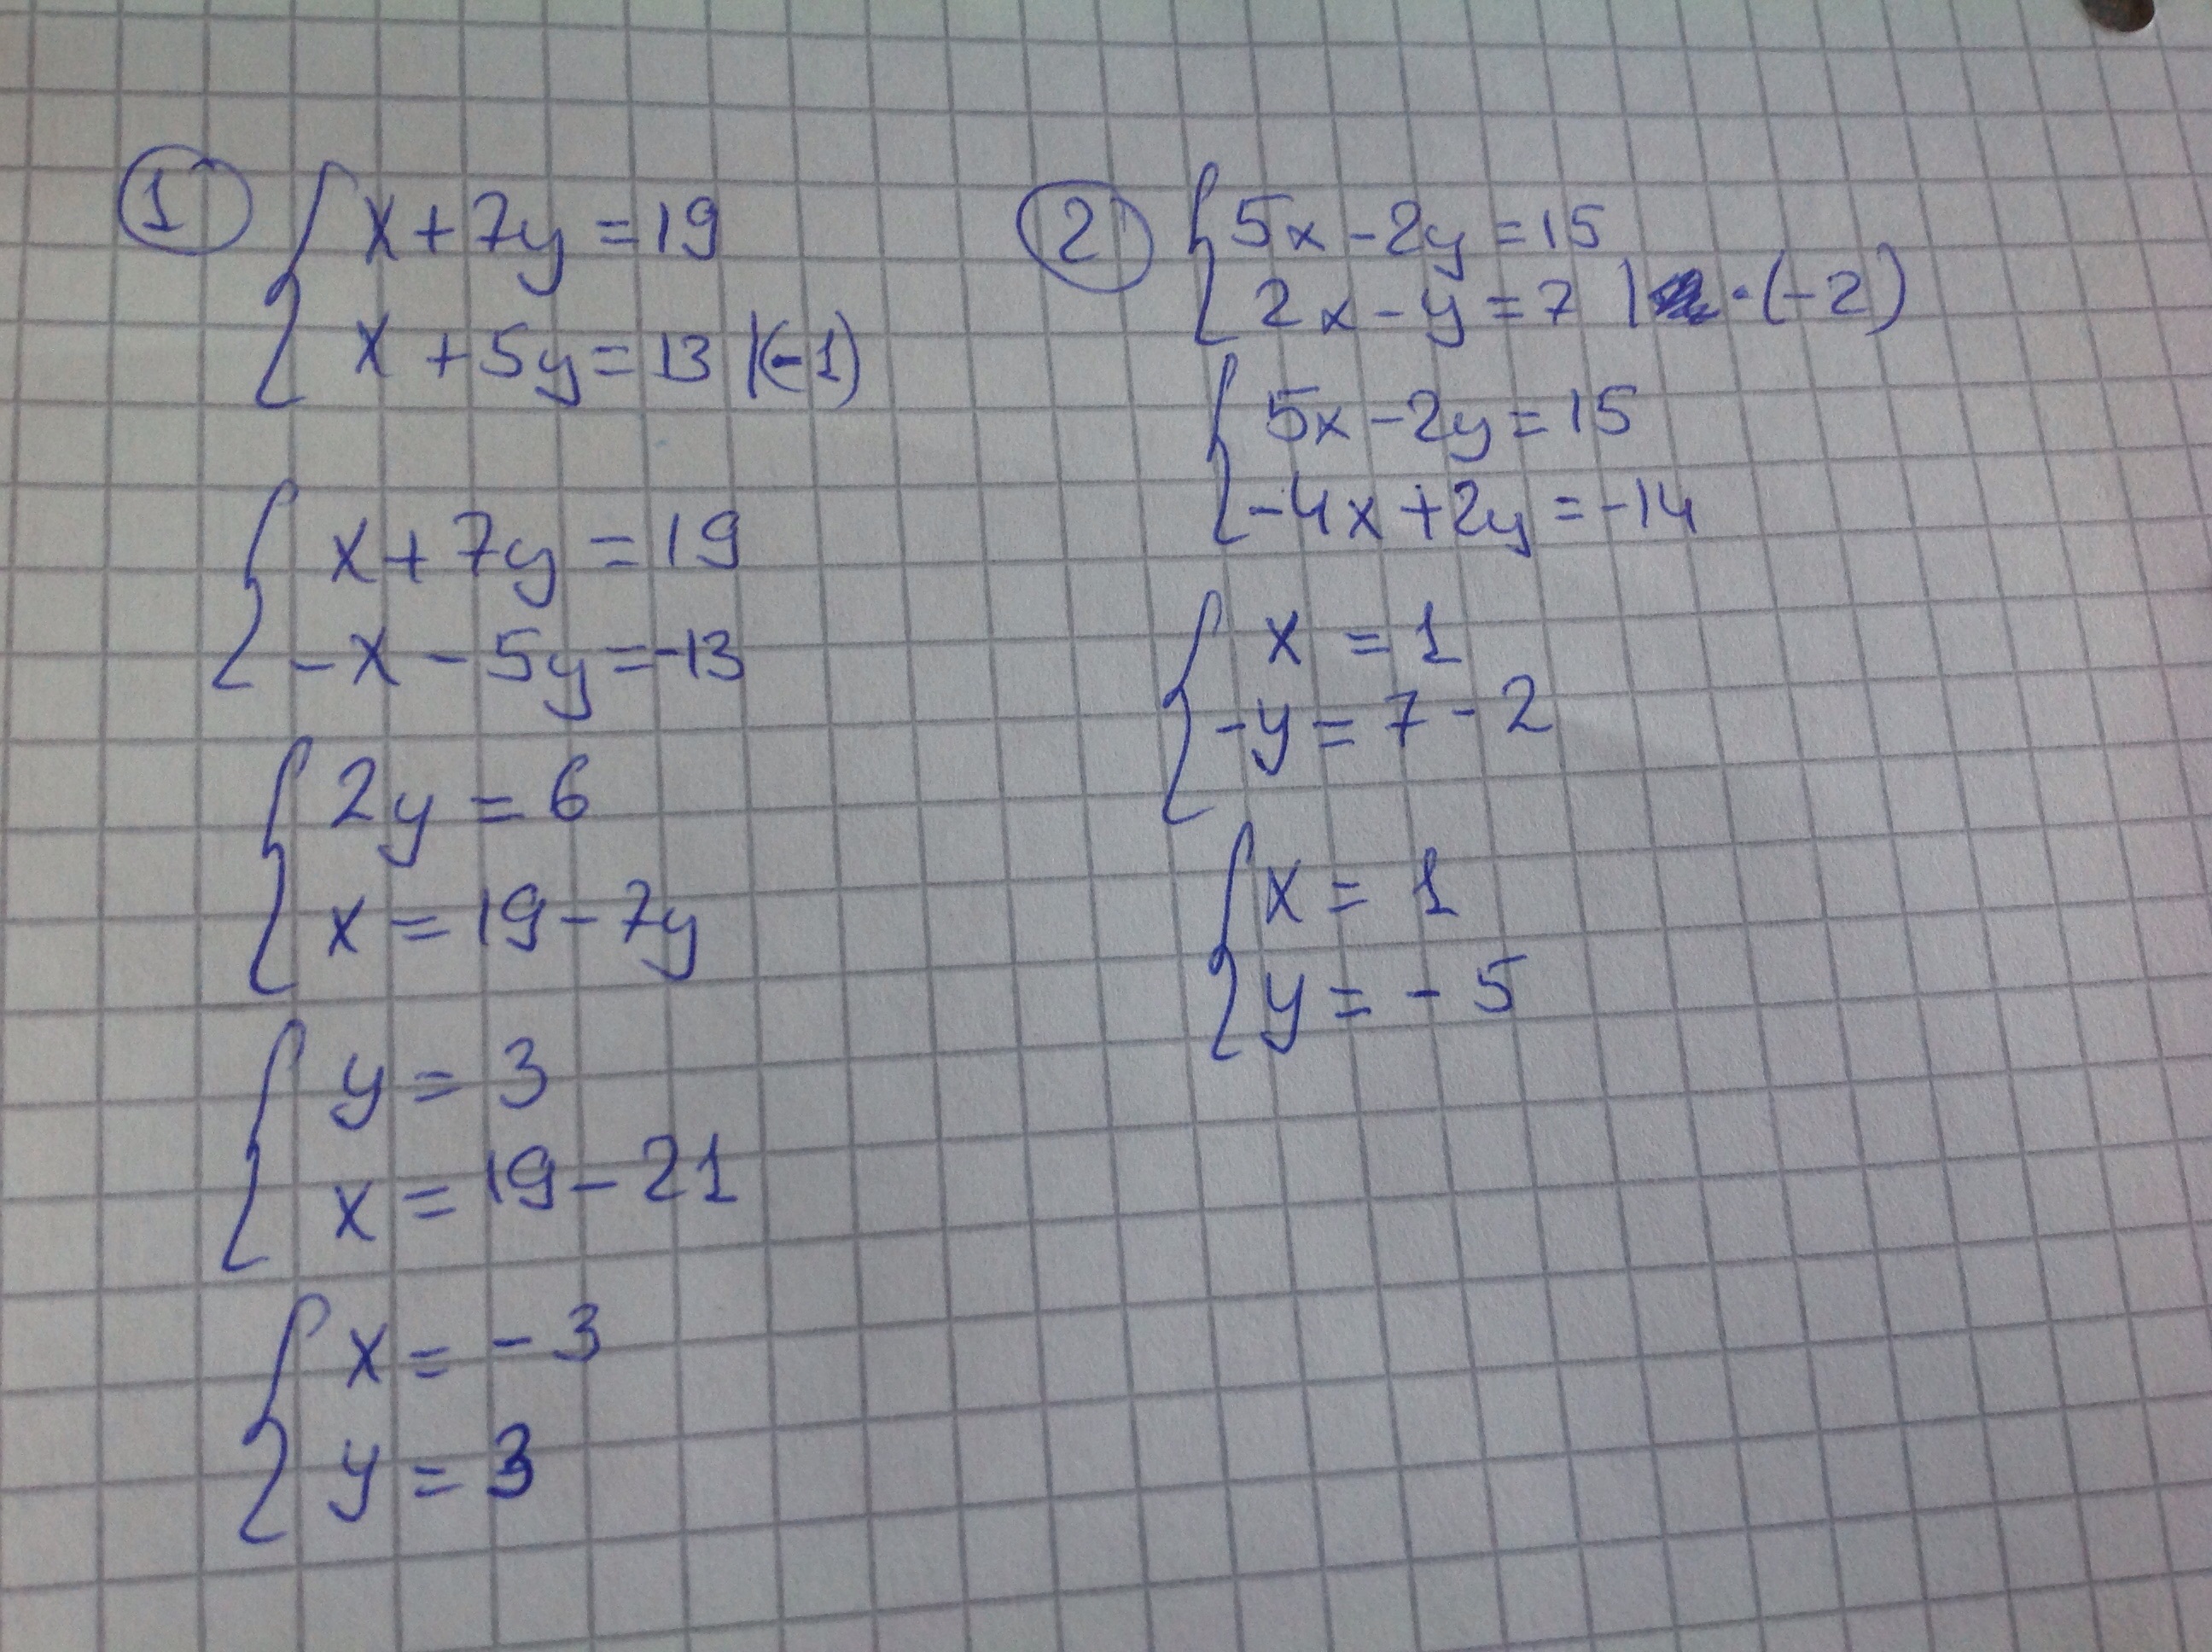 1
x + 7y = 19
x + 5y = 13 |(-1)
x + 7y = 19
-x - 5y = -13
2y = 6
x = 19 - 7y
y = 3
x = 19 - 21
x = -3
y = 3
2
5x - 2y = 15
2x - y = 7 | · (-2)
5x - 2y = 15
-4x + 2y = -14
x = 1
-y = 7 - 2
x = 1
y = -5